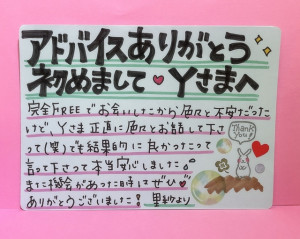 アドバイスありがとう
初めまして♥Yさまへ
完全FREEでお会いしたから色々と不安だった
けど、Yさま正直に色々とお話して下さ
って(笑)でも結果的に良かったって
言って下さって本当安心しました。
また機会があった時してぜひ♥
ありがとうございました! 里紗より
Thank you!